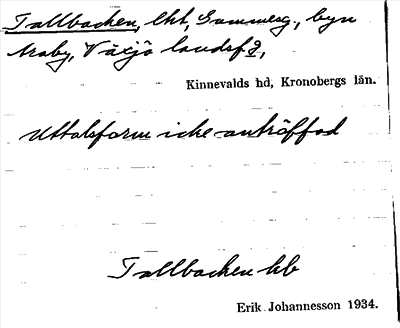 Tallbacken, lht, Gummesg., byn
Araby, Växjö landsf.,
Kinnevalds hd, Kronobergs län.
Uttalsform icke anträffad
Tallbacken hb
Erik Johannesson 1934.